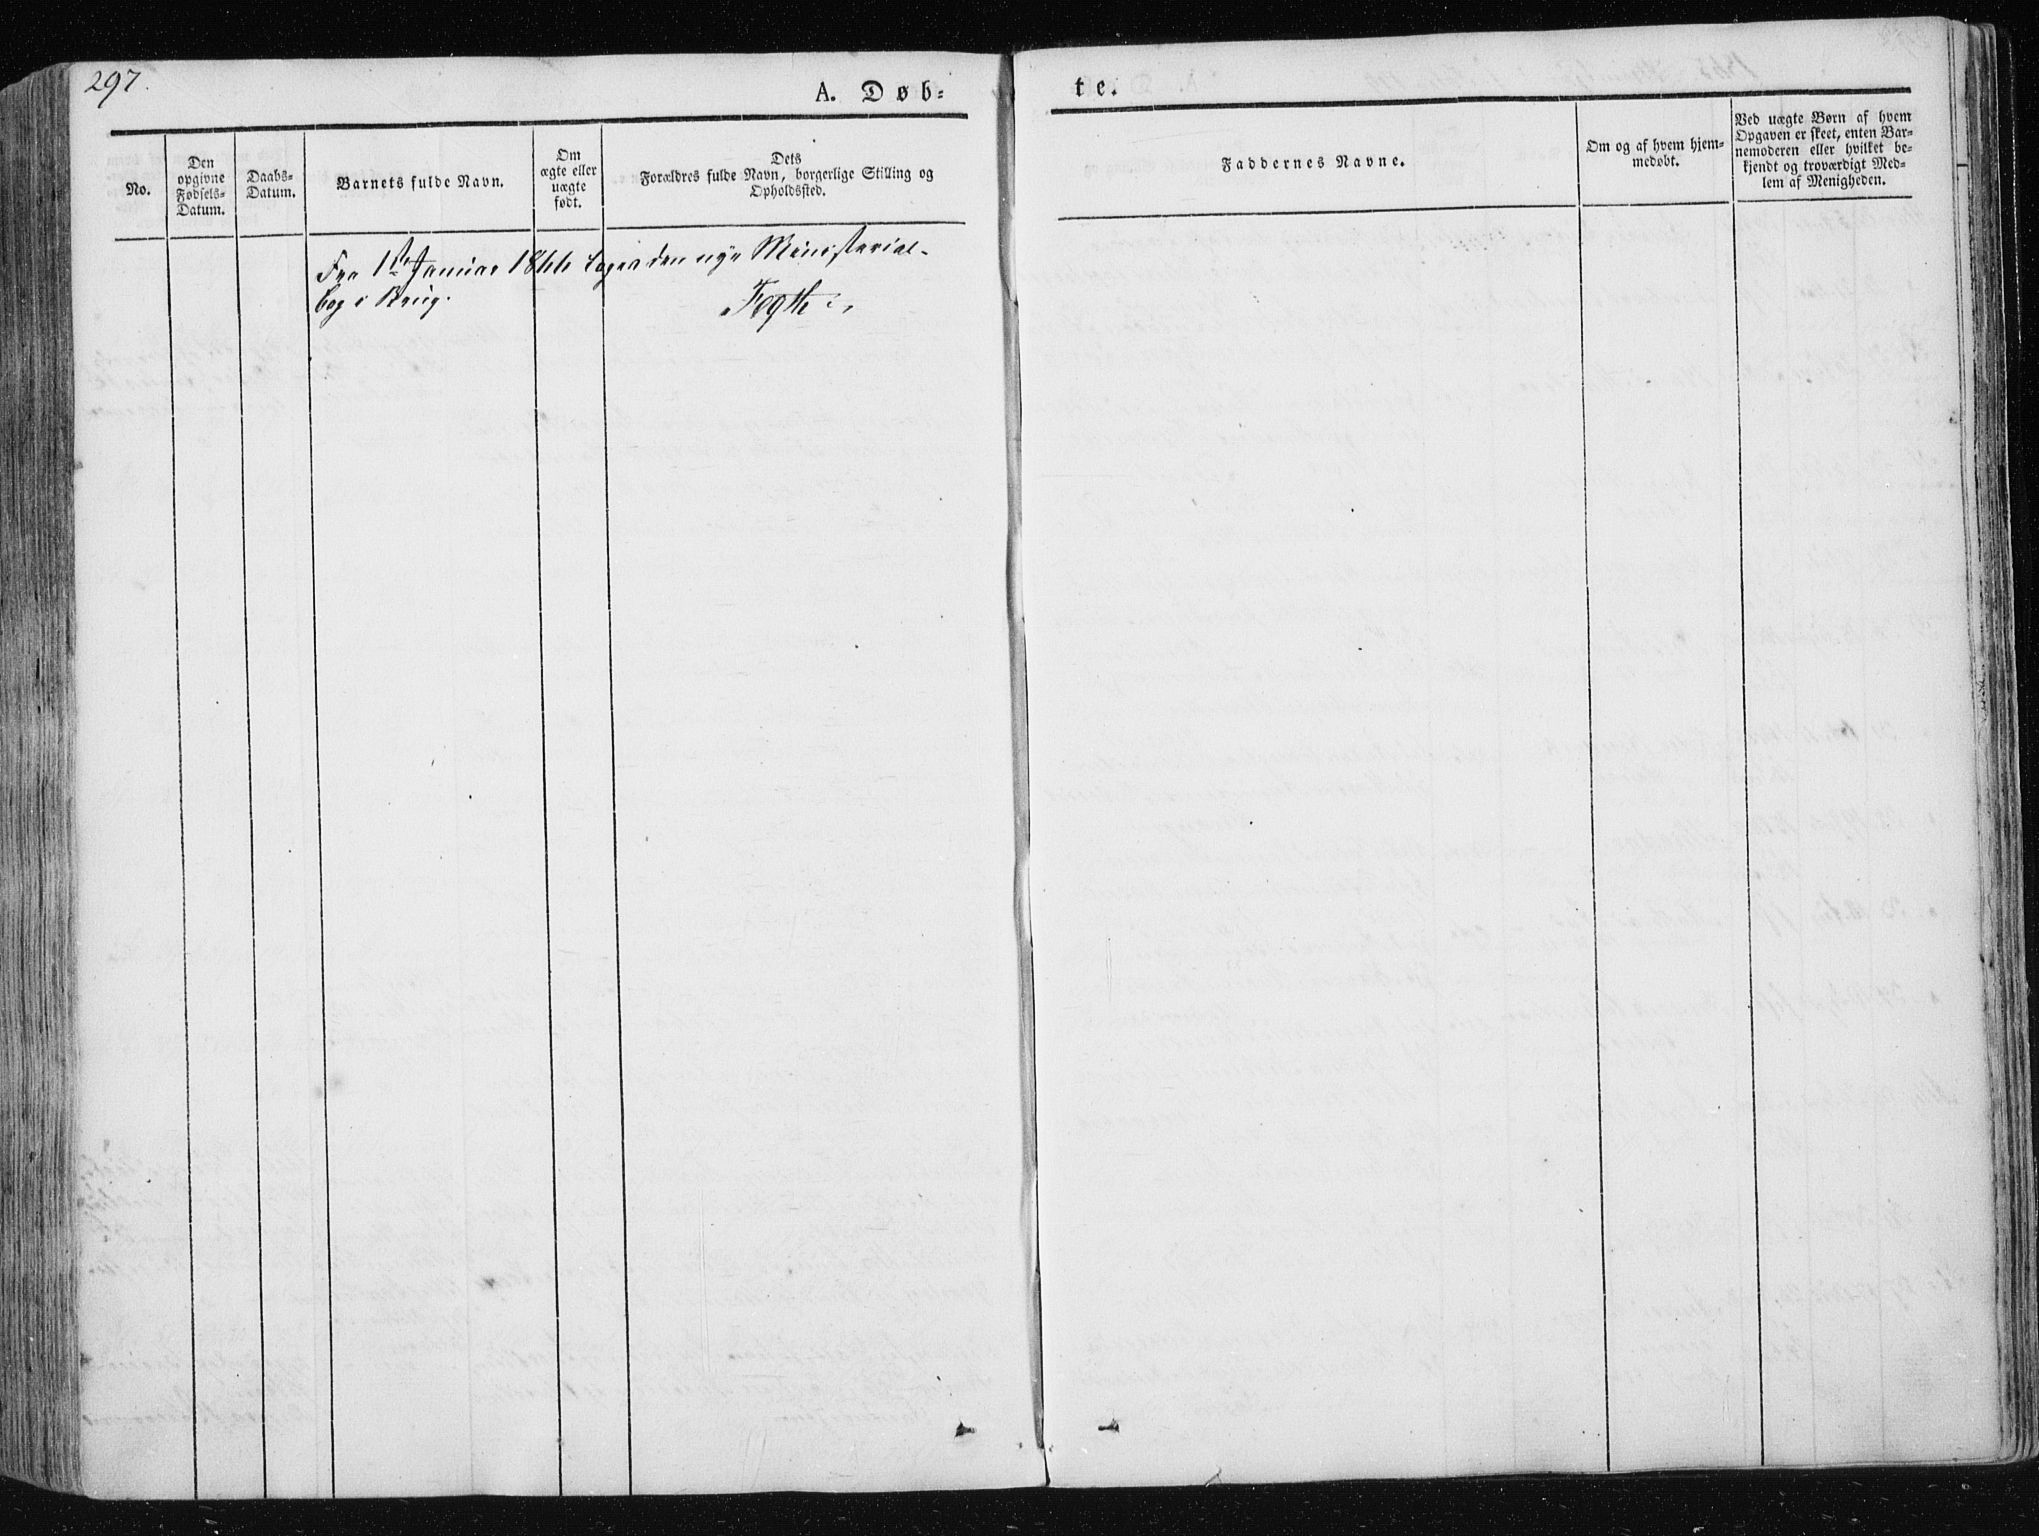 297.
A. Døb=
te.
No.
Den
opgivne
Fødsels-
Datum.
Daabs-
Datum.
Barnets fulde Navn.
Om
ægte eller
uægte
født.
Dets
Forældres fulde Navn, borgerlige Stilling og
Opholdssted.
Faddernes Navne.
Om og af hvem hjem-
medøbt.
Ved uægte Børn af hvem
Opgaven er skeet, enten Bar-
nemoderen eller hvilket be-
kjendt og troværdigt Med-
lem af Menigheden.
Fra 1ste Januar 1866 tages den nye Ministerial-
bog i Brug.